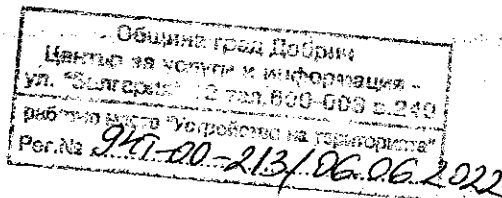 Община град Добрич
Център за услуги и информация -
ул. "България" 12 тел.600-003 в.240
работно място "Устройство на територията"
Рег.№ 94П-00-213/06.06.2022